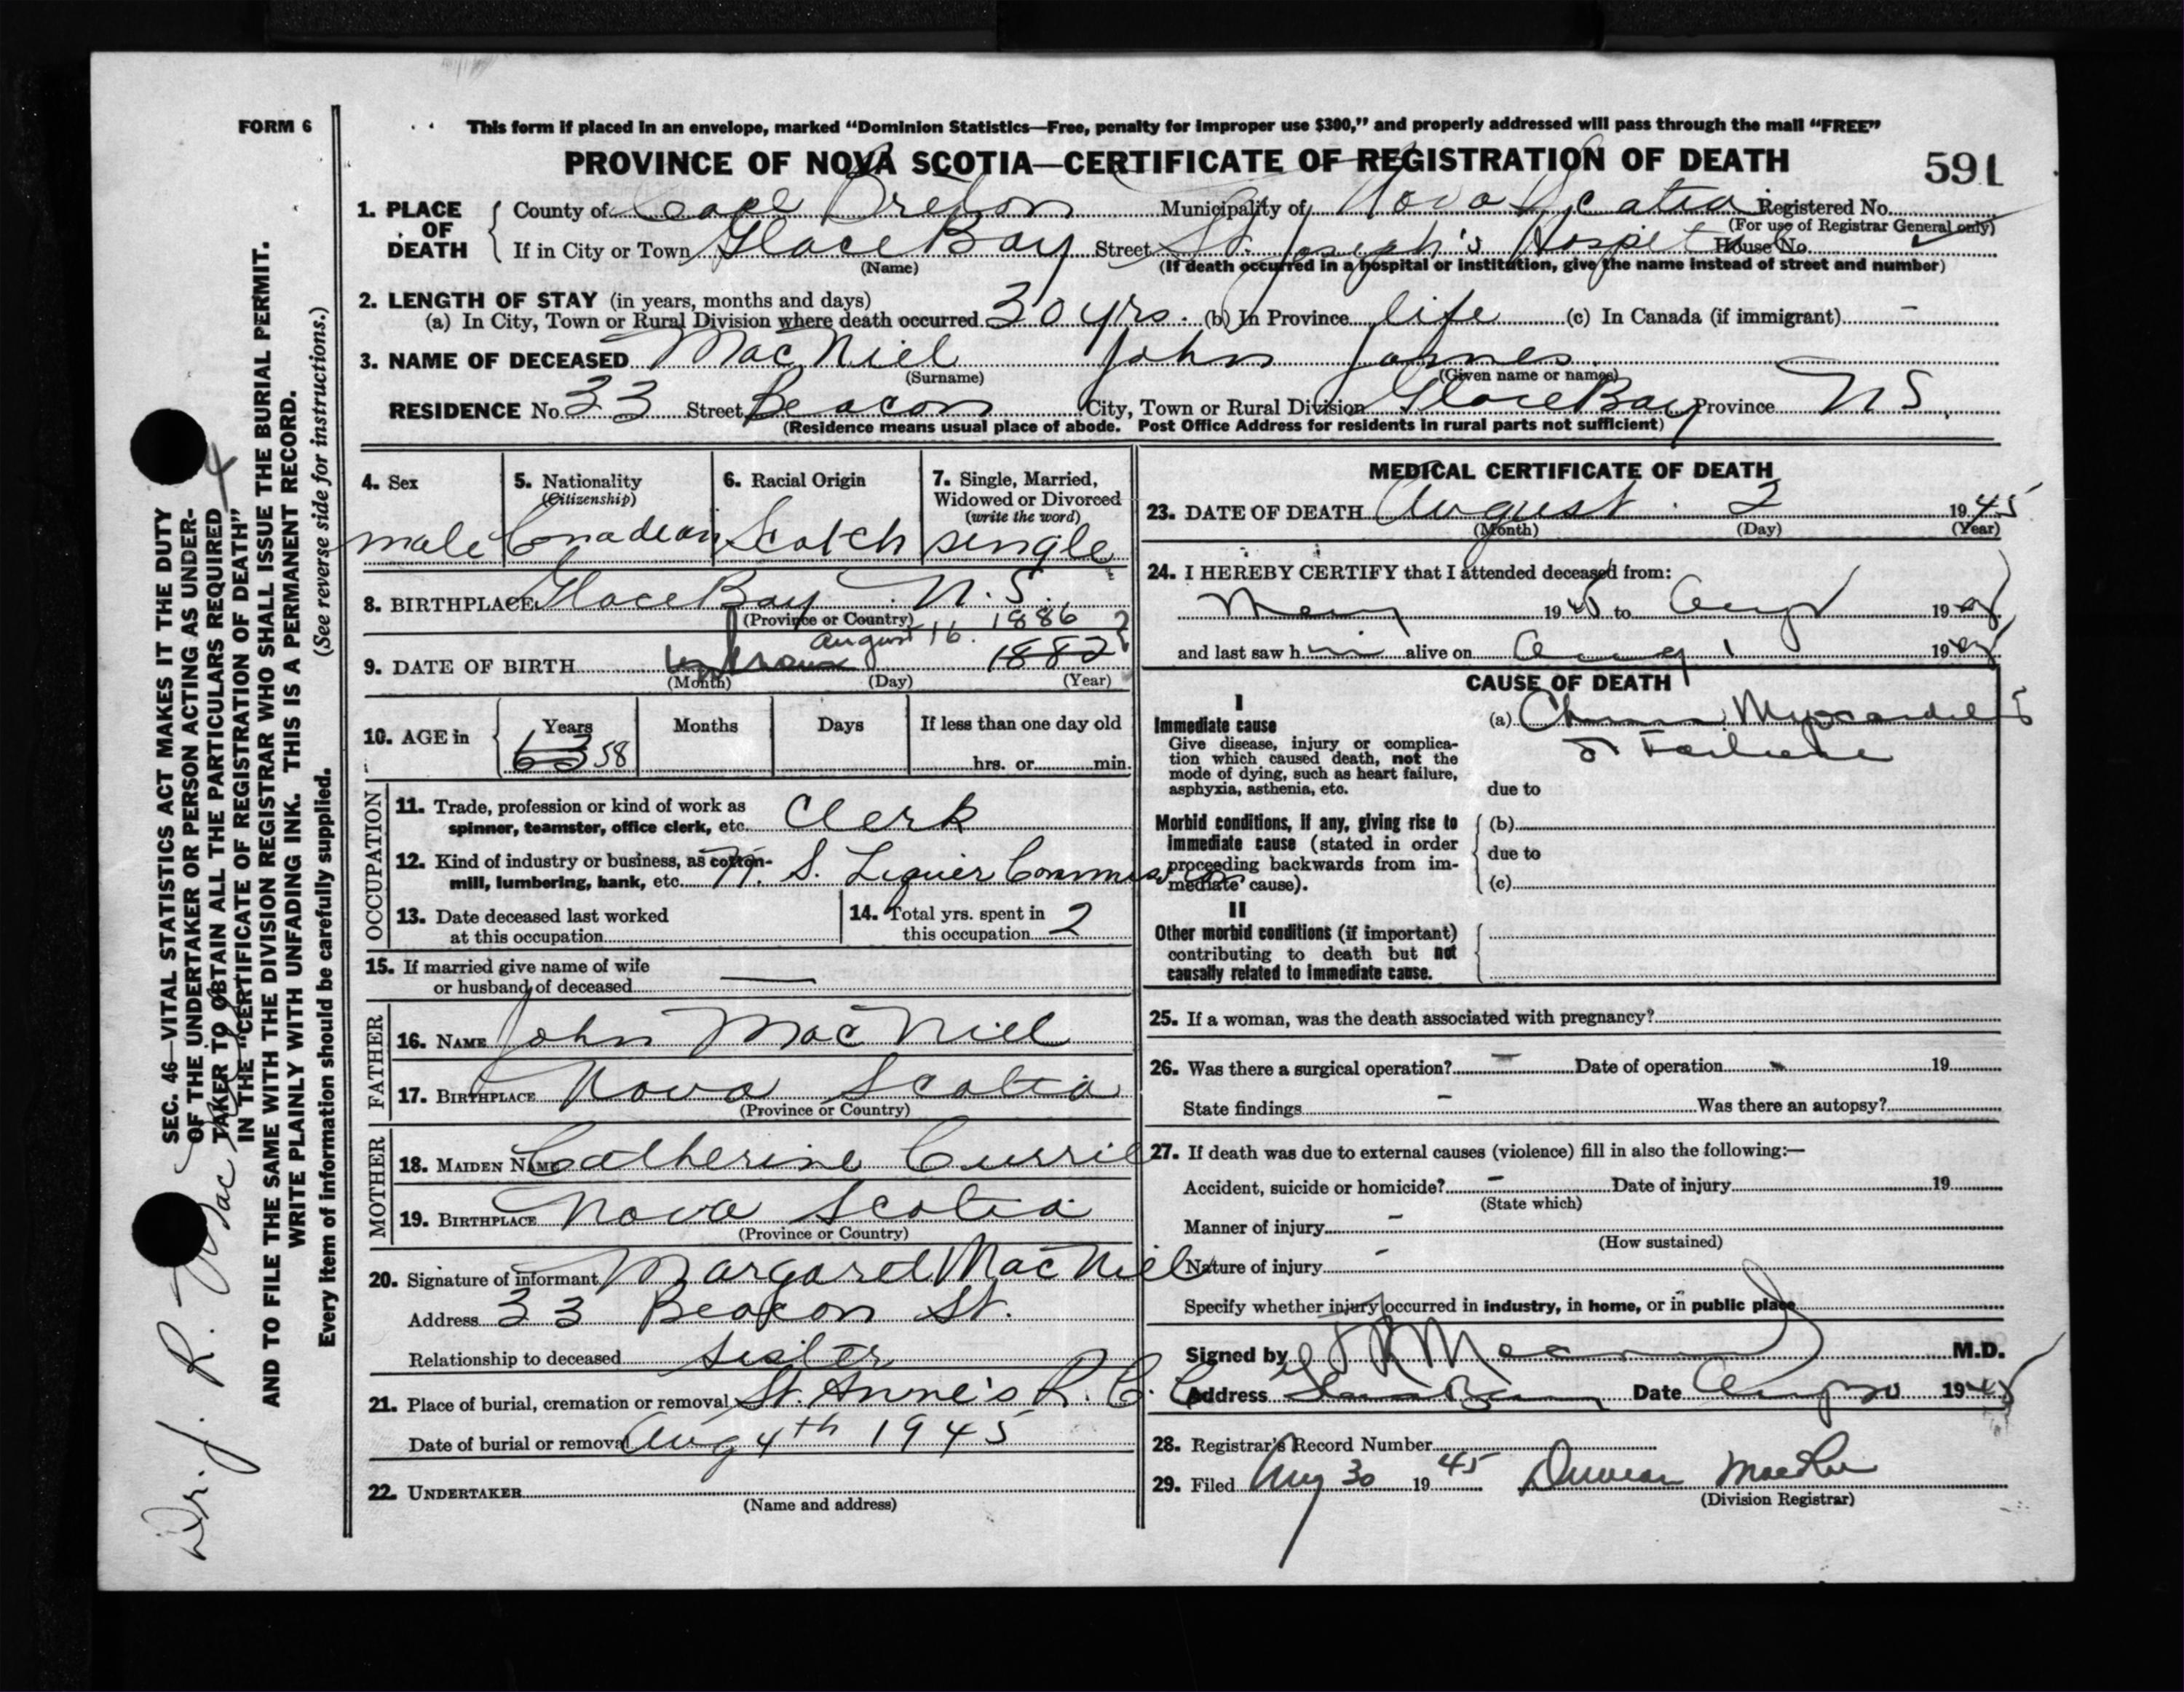 FORM 6
This form if placed in an envelope, marked “Dominion Statistics—Free, penalty for improper use $300,” and properly addressed will pass through the mail “FREE”
PROVINCE OF NOVA SCOTIA—CERTIFICATE OF REGISTRATION OF DEATH
591
1. PLACE OF DEATH
County of Cape Breton Municipality of Nova Scotia Registered No.
(For use of Registrar General only)
If in City or Town Glace Bay Street St. Joseph's Hospital House No.
(Name) (If death occurred in a hospital or institution, give the name instead of street and number)
2. LENGTH OF STAY (in years, months and days)
(a) In City, Town or Rural Division where death occurred 30 yrs. (b) In Province life (c) In Canada (if immigrant) -
3. NAME OF DECEASED MacNiel John James
(Surname) (Given name or names)
RESIDENCE No. 33 Street Beacon City, Town or Rural Division Glace Bay Province N S.
(Residence means usual place of abode. Post Office Address for residents in rural parts not sufficient)
4. Sex
male
5. Nationality
(Citizenship)
Canadian
6. Racial Origin
Scotch
7. Single, Married,
Widowed or Divorced
(write the word)
single
8. BIRTHPLACE Glace Bay N. S.
(Province or Country)
August 16. 1886
9. DATE OF BIRTH unknown 1882
(Month) (Day) (Year)
10. AGE in
Years Months Days If less than one day old
63 58 hrs. or min.
OCCUPATION
11. Trade, profession or kind of work as
spinner, teamster, office clerk, etc. Clerk
12. Kind of industry or business, as cotton-
mill, lumbering, bank, etc. N. S. Liquier Commission
13. Date deceased last worked
at this occupation
14. Total yrs. spent in
this occupation 2
15. If married give name of wife
or husband of deceased —
FATHER
16. NAME John MacNiel
17. BIRTHPLACE Nova Scotia
(Province or Country)
MOTHER
18. MAIDEN NAME Catherine Currie
19. BIRTHPLACE Nova Scotia
(Province or Country)
20. Signature of informant Margaret MacNiel
Address 33 Beacon St.
Relationship to deceased sister
21. Place of burial, cremation or removal St. Anne's R. C. C
Date of burial or removal Aug 4th 1945
22. UNDERTAKER
(Name and address)
MEDICAL CERTIFICATE OF DEATH
23. DATE OF DEATH August 2 1945
(Month) (Day) (Year)
24. I HEREBY CERTIFY that I attended deceased from:
1945 to Aug 1 1945
and last saw him alive on Aug 1 1945
CAUSE OF DEATH
I
Immediate cause
Give disease, injury or complica-
tion which caused death, not the
mode of dying, such as heart failure,
asphyxia, asthenia, etc.
(a) Chronic Myocardial
Failure
due to
Morbid conditions, if any, giving rise to
immediate cause (stated in order
proceeding backwards from im-
mediate cause).
(b)
due to
(c)
II
Other morbid conditions (if important)
contributing to death but not
causally related to immediate cause.
25. If a woman, was the death associated with pregnancy?
26. Was there a surgical operation? - Date of operation - 19
State findings - Was there an autopsy?
27. If death was due to external causes (violence) fill in also the following:—
Accident, suicide or homicide? - Date of injury 19
(State which)
Manner of injury -
(How sustained)
Nature of injury -
Specify whether injury occurred in industry, in home, or in public place
Signed by M.D.
Address Glace Bay Date Aug 30 1945
28. Registrar's Record Number
29. Filed Aug 30 1945 Duncan MacRae
(Division Registrar)
SEC. 46—VITAL STATISTICS ACT MAKES IT THE DUTY
OF THE UNDERTAKER OR PERSON ACTING AS UNDER-
TAKER TO OBTAIN ALL THE PARTICULARS REQUIRED
IN THE “CERTIFICATE OF REGISTRATION OF DEATH”
AND TO FILE THE SAME WITH THE DIVISION REGISTRAR WHO SHALL ISSUE THE BURIAL PERMIT.
WRITE PLAINLY WITH UNFADING INK. THIS IS A PERMANENT RECORD.
Every item of information should be carefully supplied. (See reverse side for instructions.)
Dr. J. R.